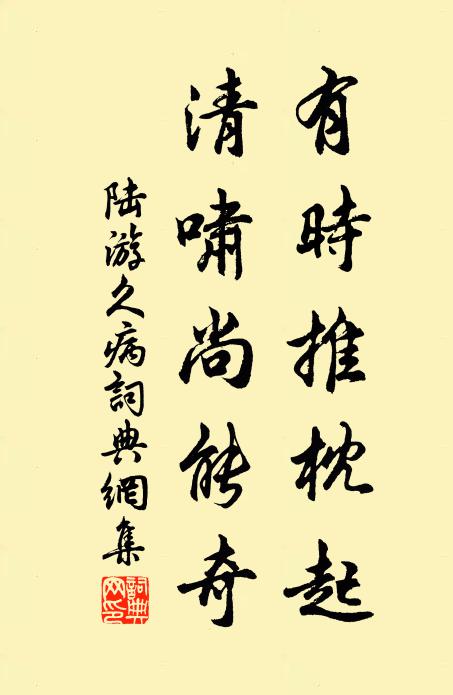 有時推枕起
清嘯尚能奇
陸游久病詞典網集
詞典網印